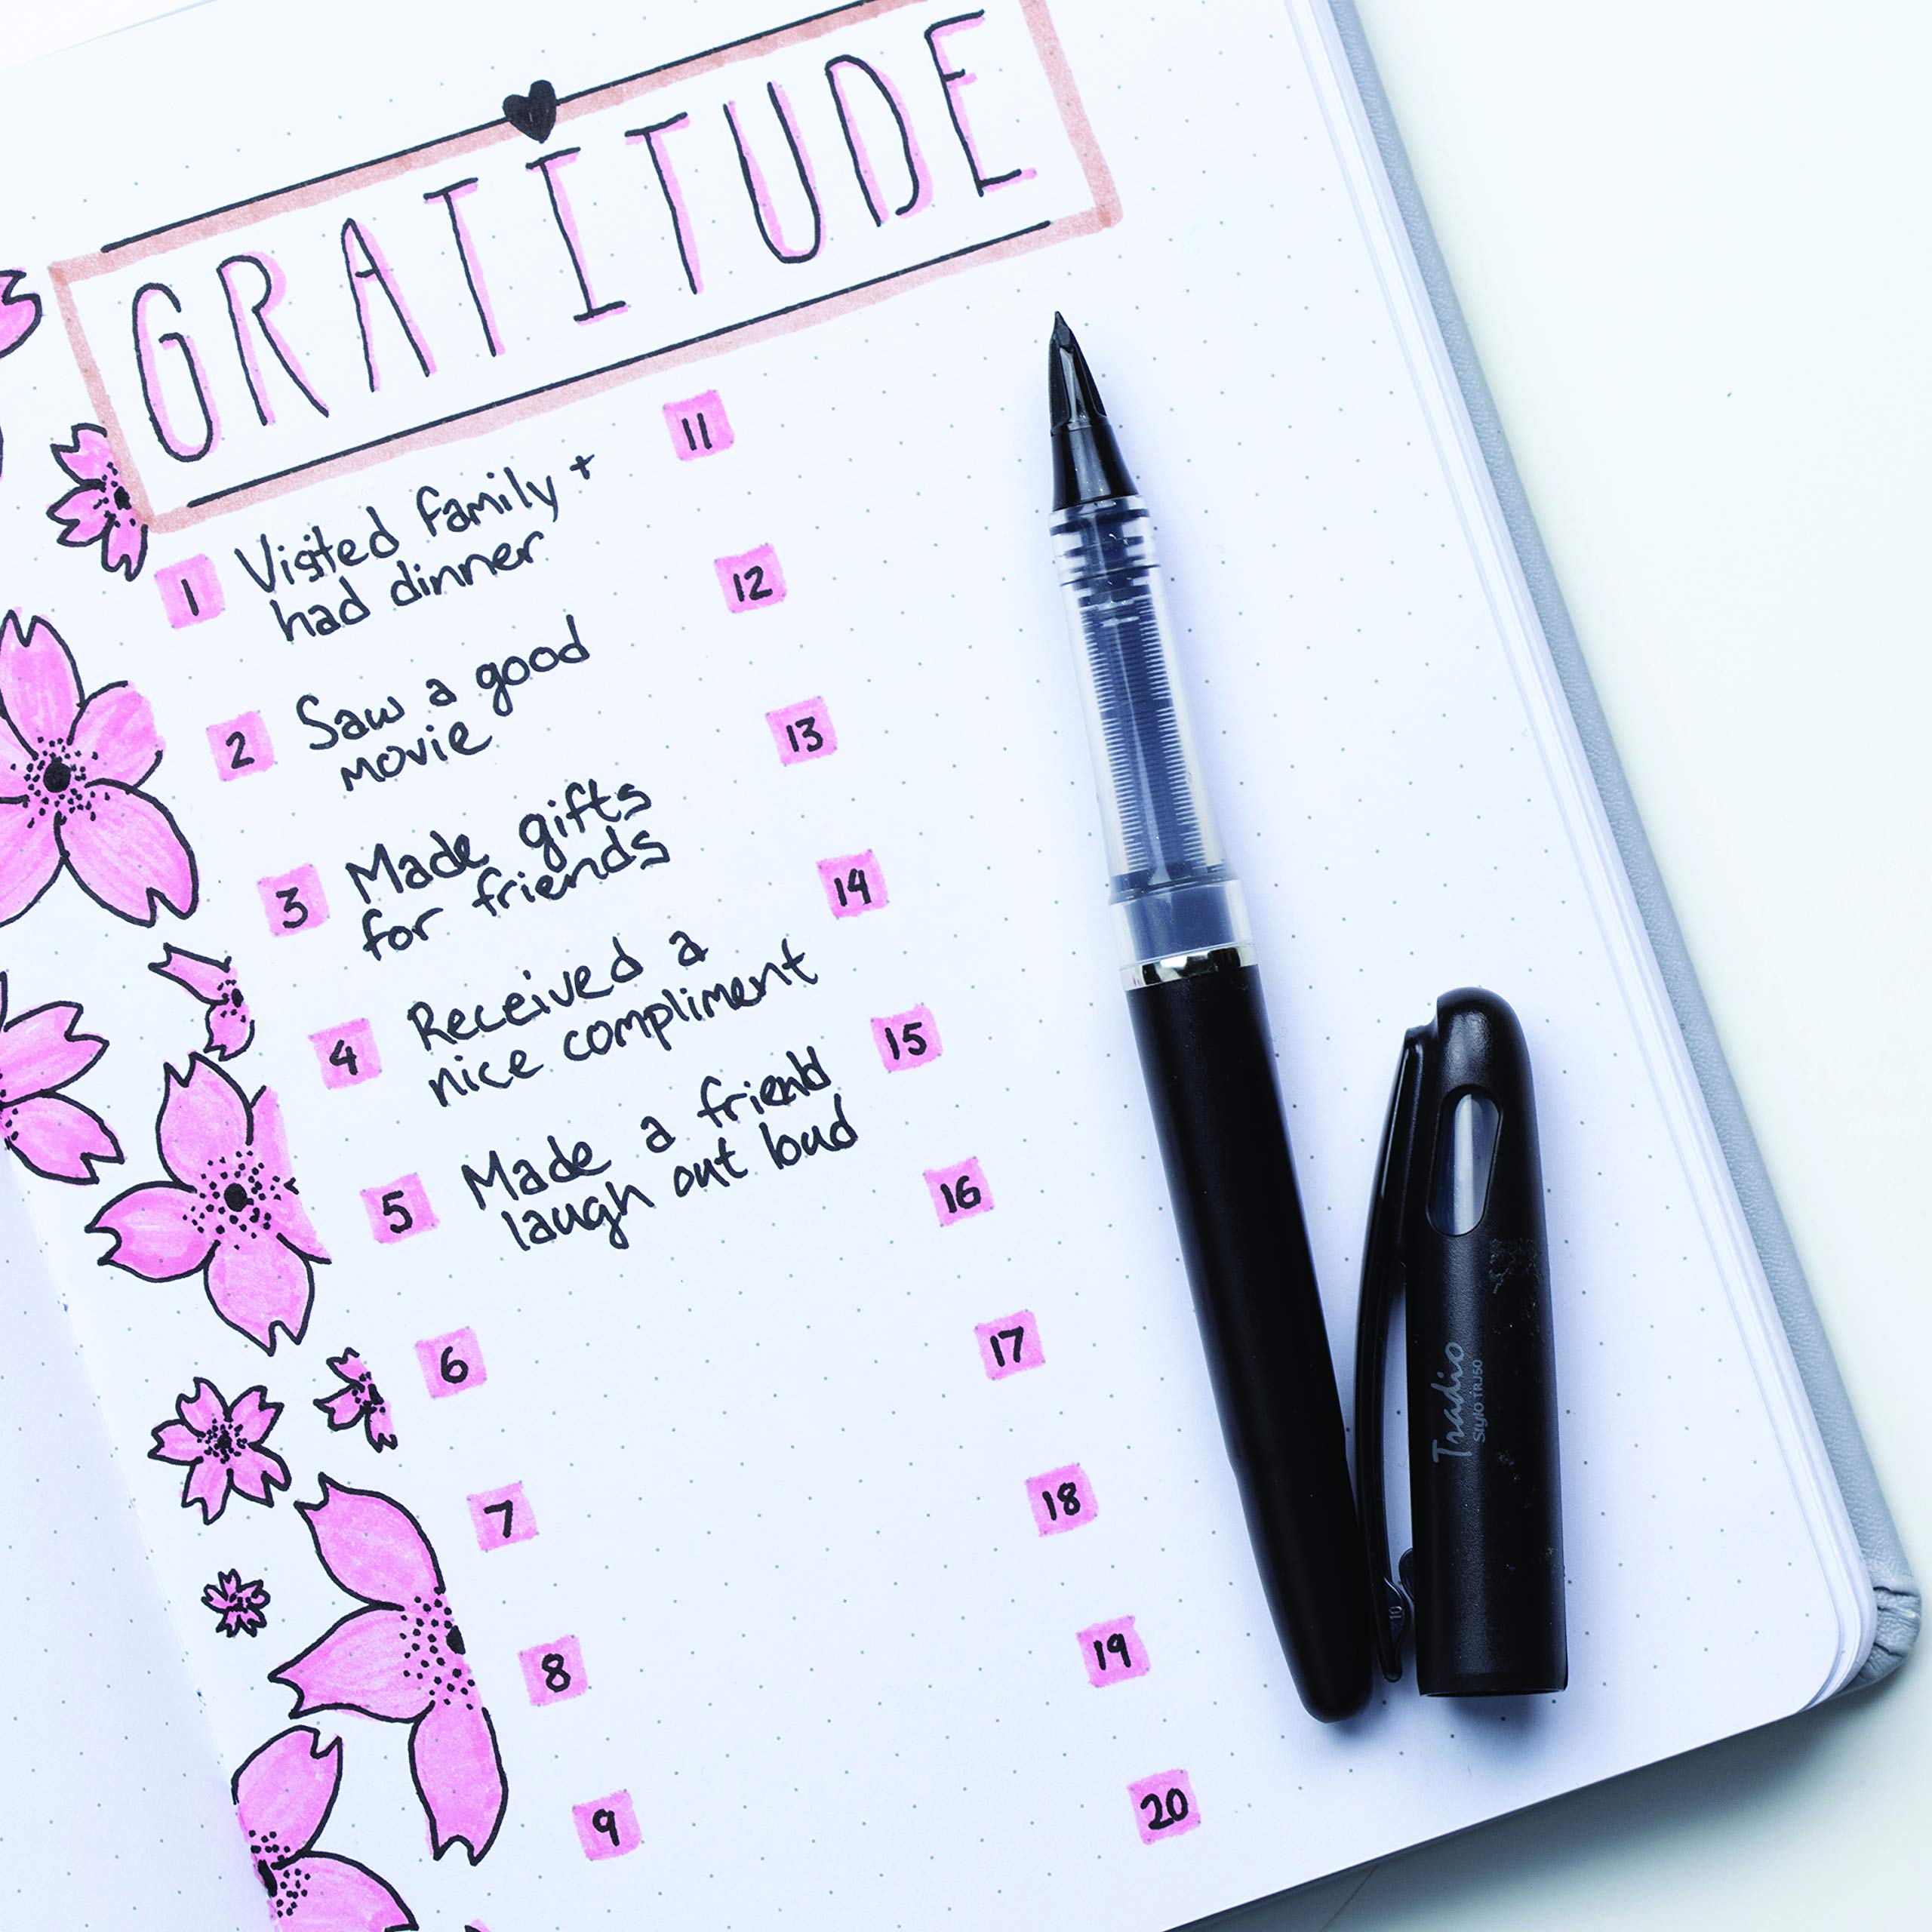 GRATITUDE
1 Visited family +
had dinner
2 Saw a good
movie
3 Made gifts
for friends
4 Received a
nice compliment
5 Made a friend
laugh out loud
6
7
8
9
11
12
13
14
15
16
17
18
19
20
Tradio
Stylo TRJ50
10